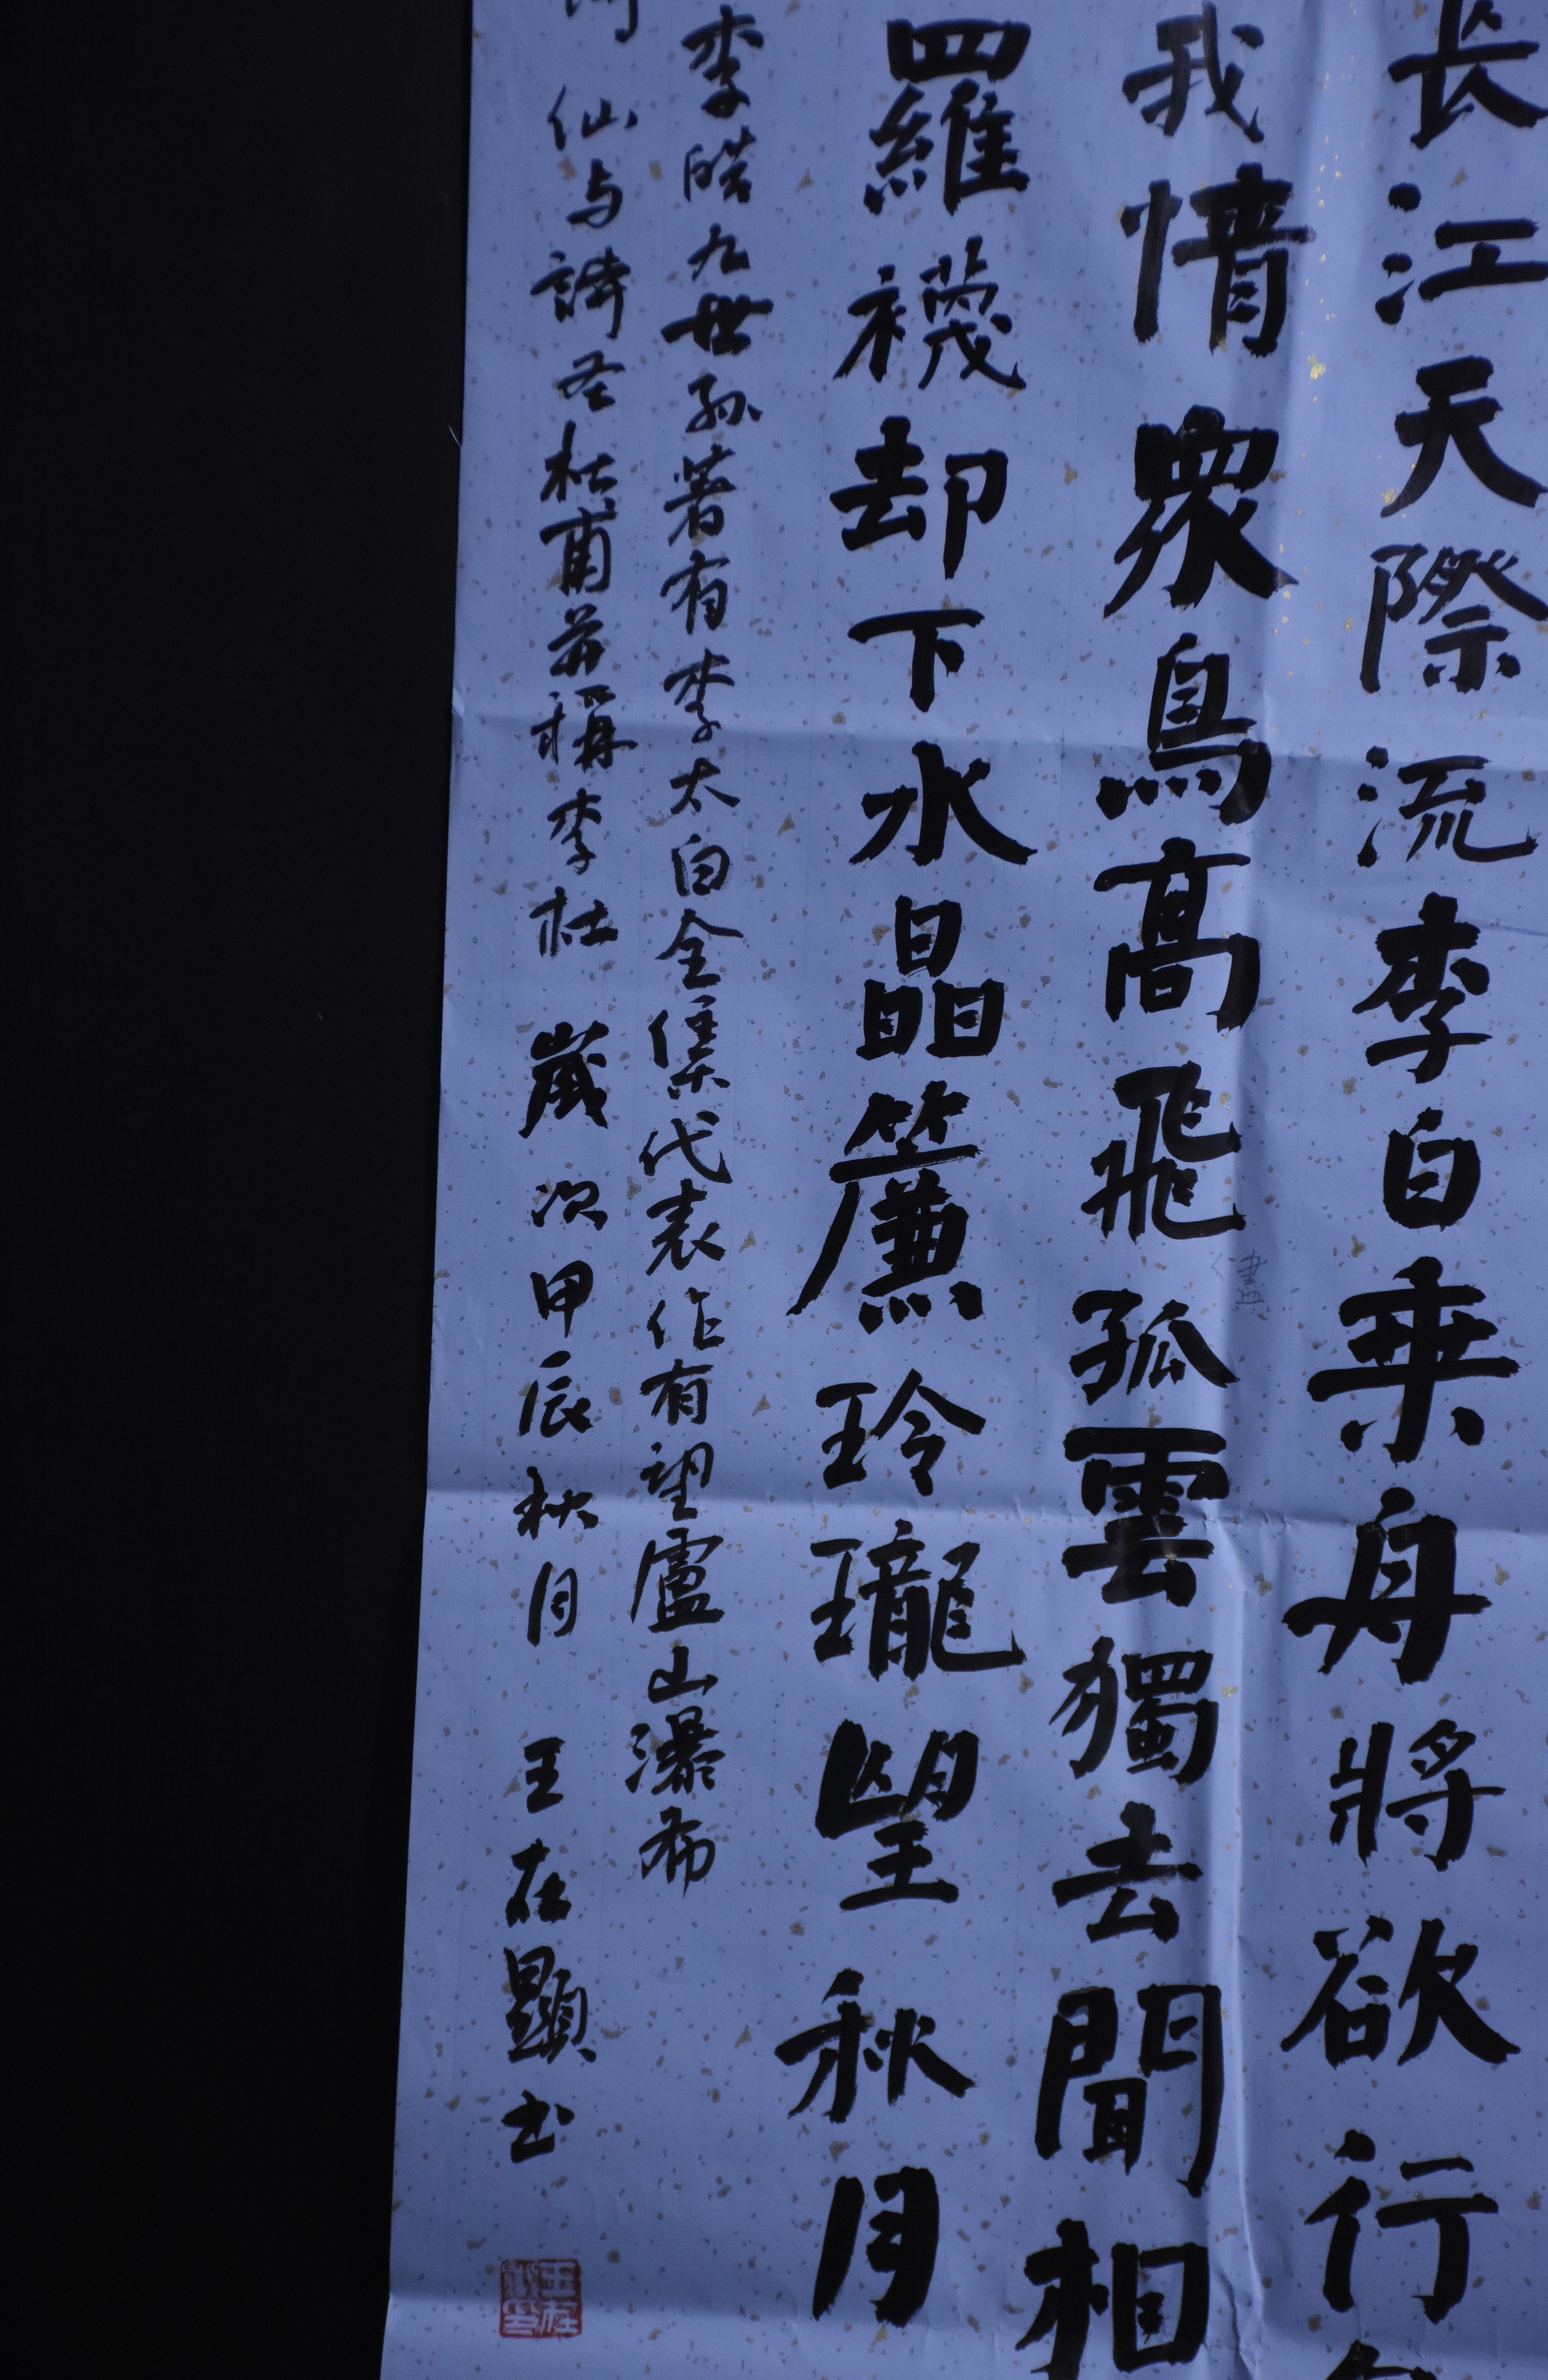 長江天際流李白乗舟將欲行
我情衆鳥高飛孤雲獨去閒相
盡
羅襪却下水晶簾玲瓏望秋月
李皓九世孫著有李太白全集代表作有望廬山瀑布
仙与詩圣杜甫并稱李杜 歲次甲辰秋月 王在顯书